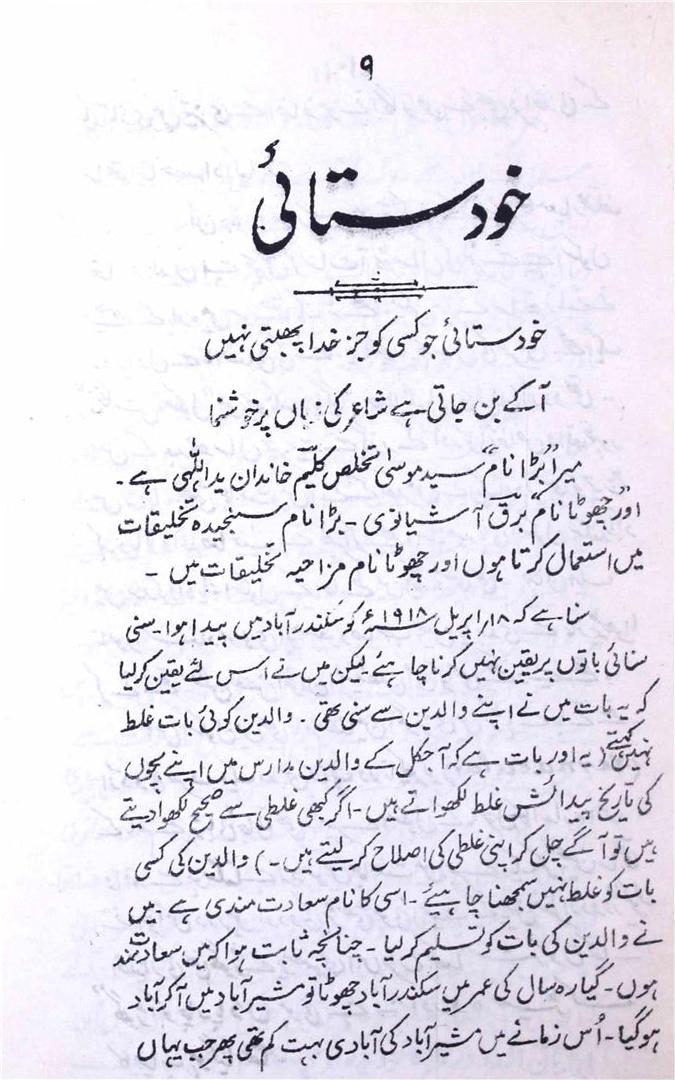 ۹
خودستائی
خودستائی جو کسی کو جز خدا پھبتی نہیں
آکے بن جاتی ہے شاعر کی زباں پر خوشنما
میرا "بڑا نام" سید موسیٰ تخلص کلیم خاندان یداللّٰہی ہے۔
اور "چھوٹا نام" برق آشیانوی ۔ بڑا نام سنجیدہ تخلیقات
میں استعمال کرتا ہوں اور چھوٹا نام مزاحیہ تخلیقات میں ۔
سنا ہے کہ ۱۸؍اپریل ۱۹۱۸ء کو سکندرآباد میں پیدا ہوا ۔ سنی
سنائی باتوں پر یقین نہیں کرنا چاہیئے لیکن میں نے اس لئے یقین کرلیا
کہ یہ بات میں نے اپنے والدین سے سنی تھی ۔ والدین کوئی بات غلط
نہیں کہتے (یہ اور بات ہے کہ آجکل کے والدین مدارس میں اپنے بچوں
کی تاریخ پیدائش غلط لکھواتے ہیں ۔ اگر کبھی غلطی سے صحیح لکھوا دیتے
ہیں تو آگے چل کر اپنی غلطی کی اصلاح کر لیتے ہیں ۔) والدین کی کسی
بات کو غلط نہیں سمجھنا چاہیئے ۔ اسی کا نام سعادت مندی ہے ۔ میں
نے والدین کی بات کو تسلیم کرلیا ۔ چنانچہ ثابت ہوا کہ میں سعادتمند
ہوں ۔ گیارہ سال کی عمر میں سکندرآباد چھوٹا تو مشیرآباد میں آکر آباد
ہوگیا ۔ اُس زمانے میں مشیرآباد کی آبادی بہت کم تھی پھر جب یہاں